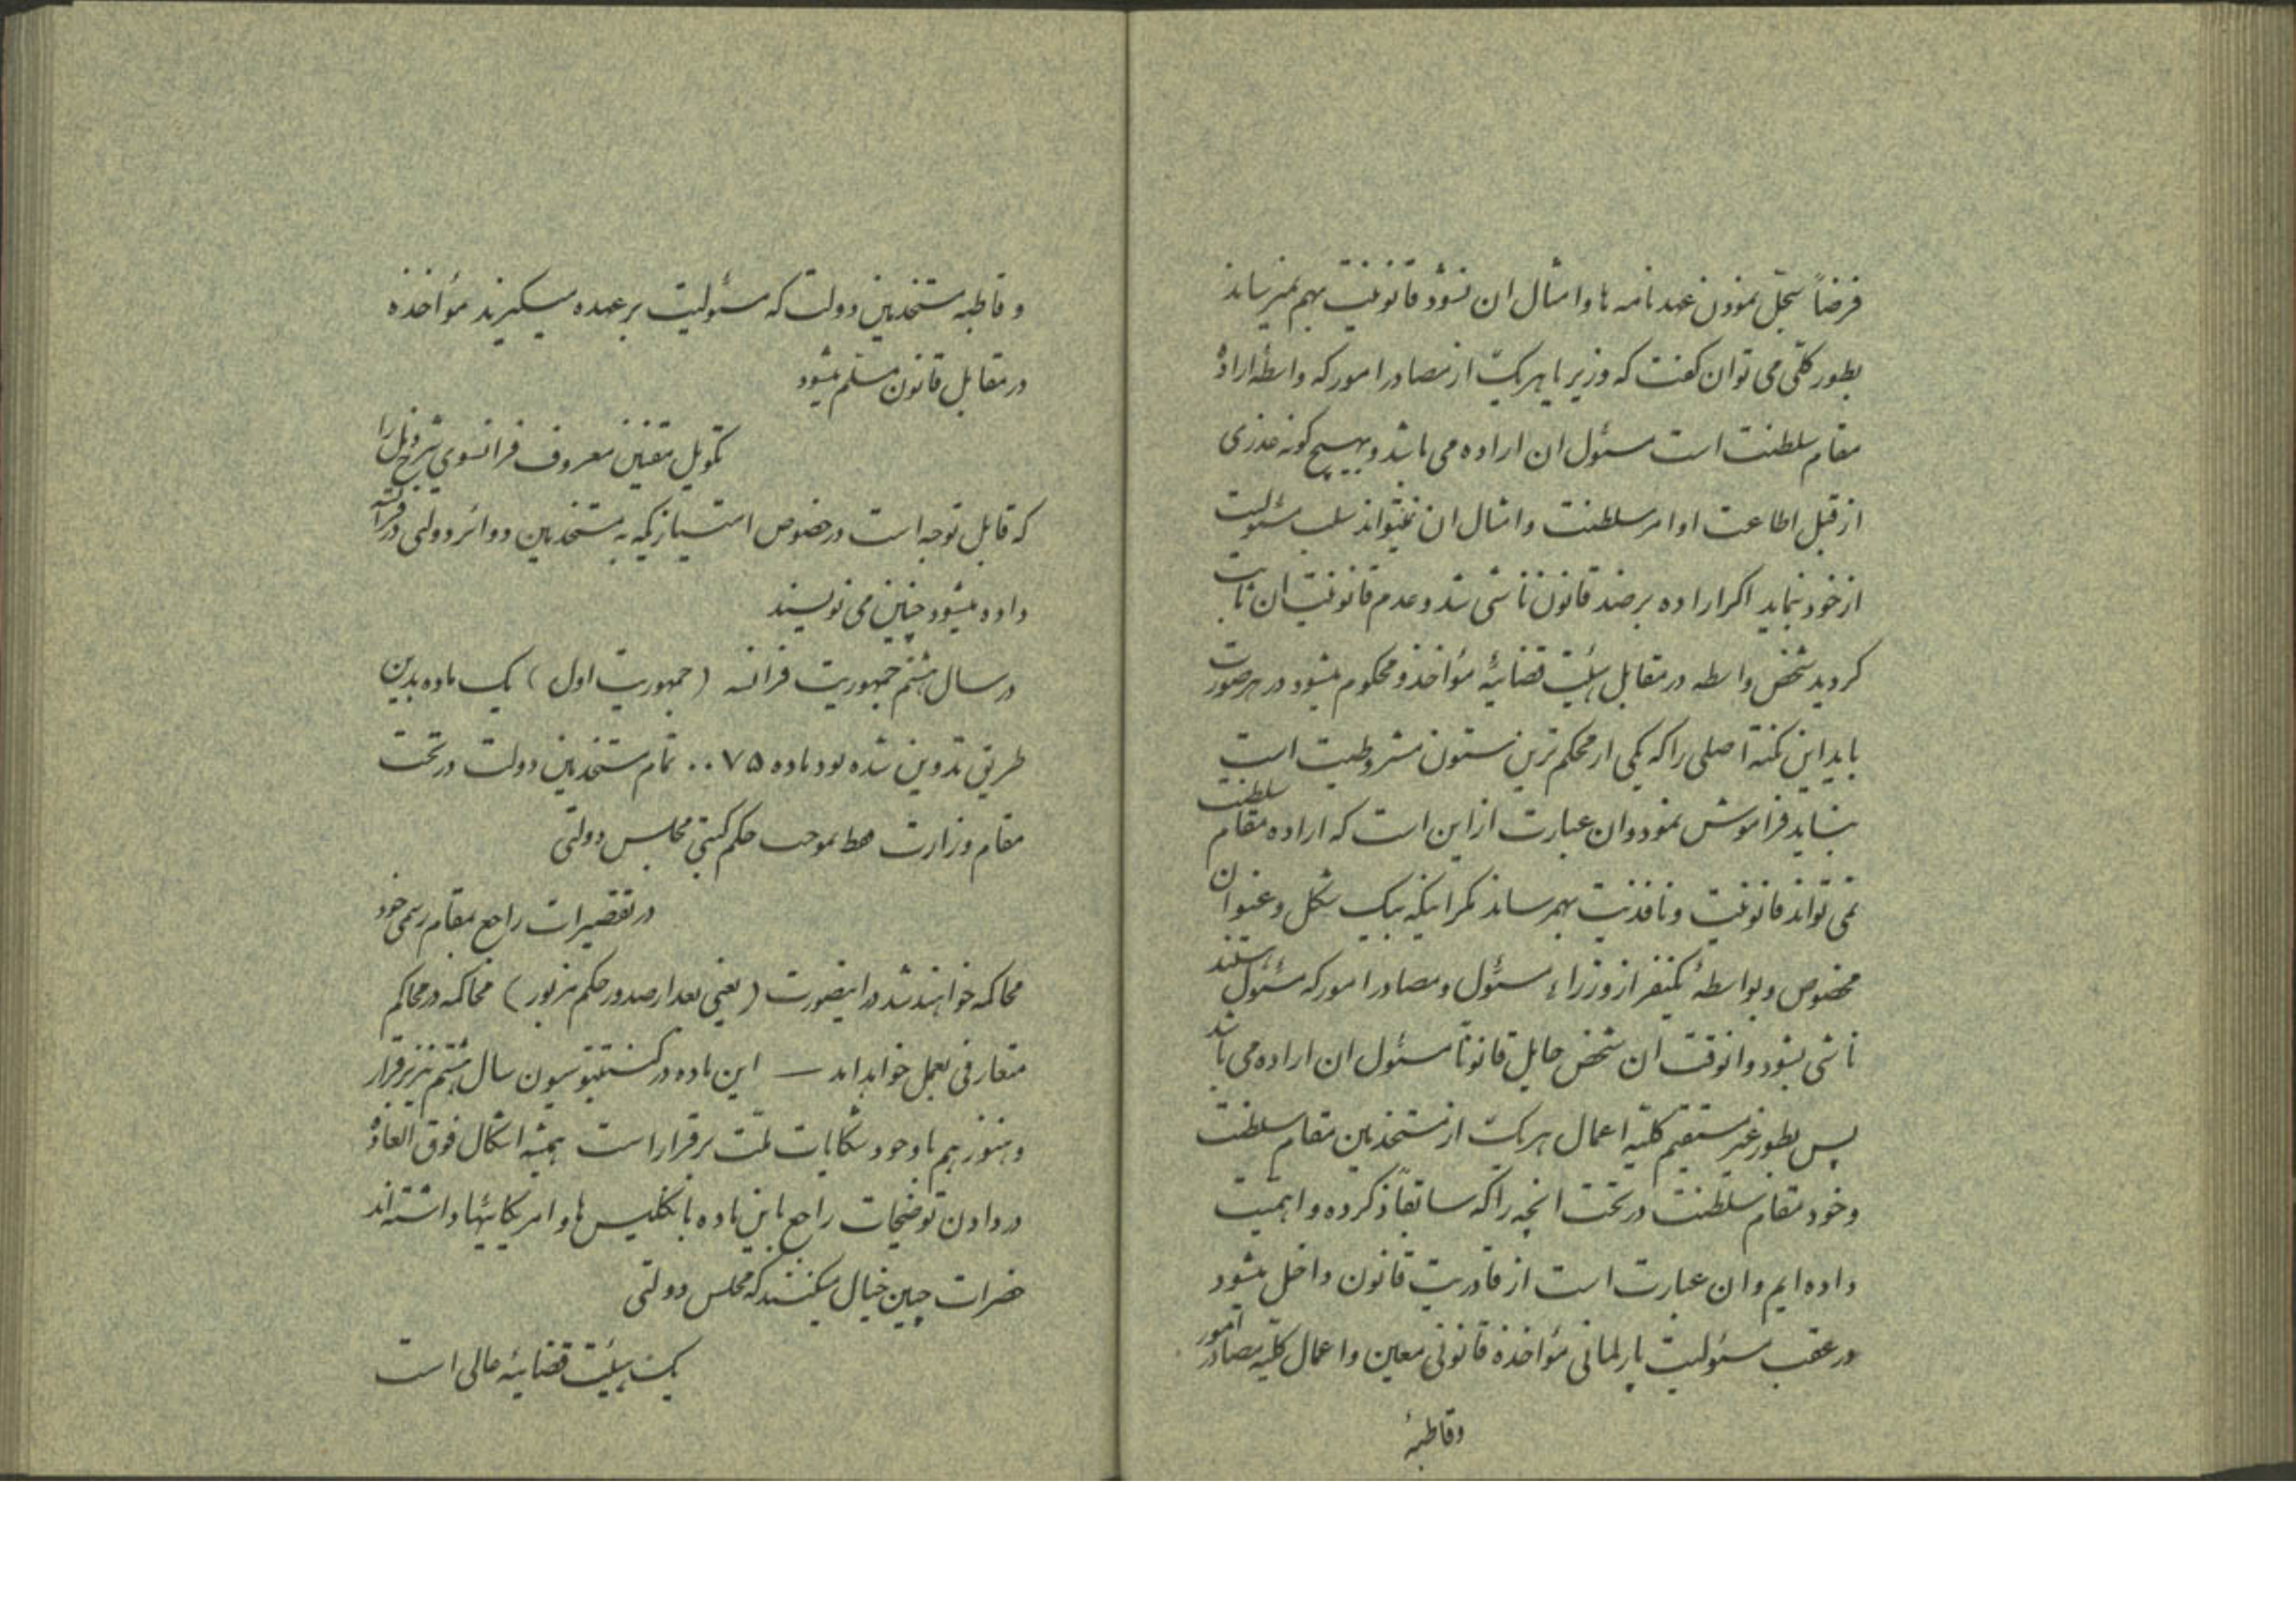 فرضاً سجل نمودن عهد نامه ها و امثال ان نشود قانونیت بهم نمیرساند
بطور کلی می توان کفت که وزیر یا هریک از مصادر امور که واسطه اراده
مقام سلطنت است مسئول ان اراده می باشد و بهیچ کونه عذری
از قبل اطاعت اوامر سلطنت و امثال ان نمیتواند سلب مسئولیت
از خود نماید اکر اراده بر ضد قانون ناشی شد و عدم قانونیت ان ثابت
کردید شخص واسطه در مقابل هیئت قضائیهٔ مؤاخذ و محکوم میشود در هر صورت
باید این نکته اصلی را که یکی از محکم ترین ستون مشروطیت است
نباید فراموش نمود و ان عبارت از این است که اراده مقام سلطنت
نمی تواند قانونیت و نافذیت بهم رساند مکر اینکه بیک شکل و عنوان
مخصوص و بواسطهٔ یکنفر از وزراء مسئول و مصادر امور که مسئول هستند
ناشی بشود و انوقت ان شخص حایل قانوناً مسئول ان اراده می باشد
پس بطور غیر مستقیم کلیه اعمال هریک از مستخدمین مقام سلطنت
و خود مقام سلطنت در تحت انچه را که سابقاً ذکر کرده و اهمیت
داده ایم و ان عبارت است از قادریت قانون داخل میشود
در عقب مسئولیت پارلمانی مؤاخذهٔ قانونی معین و اعمال کلیه مصادر امور
و قاطبهٔ
و قاطبه مستخدمین دولت که مسئولیت بر عهده میکیرند مؤاخذه
در مقابل قانون مسلم میشود
تکویل مقنن معروف فرانسوی شرح ذیل را
که قابل توجه است در خصوص امتیازیکه به مستخدمین دوائر دولتی در فرانسه
داده میشود چنین می نویسند
در سال هشتم جمهوریت فرانسه (جمهوریت اول) یک ماده بدین
طریق تدوین شده بود ماده ۷۵.. تمام مستخدمین دولت در تحت
مقام وزارت فقط بموجب حکم کتبی مجلس دولتی
در تقصیرات راجع بمقام رسمی خود
محاکمه خواهند شد در اینصورت (یعنی بعد از صدور حکم مزبور) محاکمه در محاکم
متعارفی بعمل خواهد امد — این ماده در کنستیتوسیون سال هشتم نیز برقرار
و هنوز هم با وجود شکایات ملت برقرار است همیشه اشکال فوق العاده
در دادن توضیحات راجع باین ماده بانکلیس ها و امریکائیها داشته اند
حضرات چنین خیال میکنند که مجلس دولتی
یک هیئت قضائیه عالی است